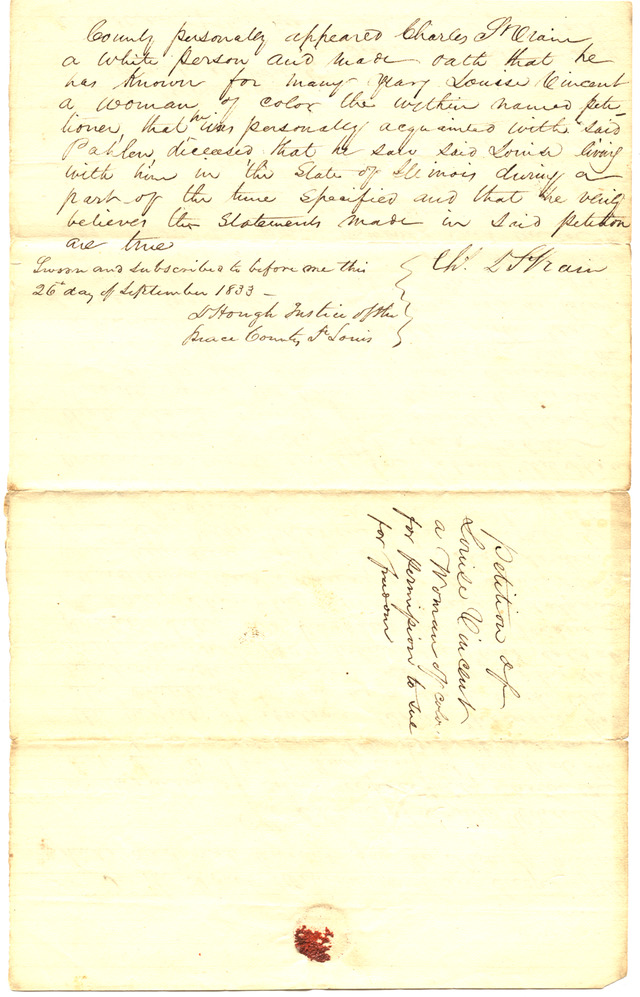 County personally appeared Charles St Vrain
a white person and made oath that he
has known for many years Louise Vincent
a woman of color the within named peti
tioner, that he was personally acquainted with said
Pablen, diceased that he saw said Louise living
with him in the State of Illinois during a
part of the time specified and that he verily
believes the Statements made in said petition
are true
Sworn and subscribed to before me this
26th day of September 1833 –
D Hough Justice of the
Peace County St Louis
Chs. D St Vrain
Petition of
Louise Vincent
a Woman of color
for permission to sue
for freedom